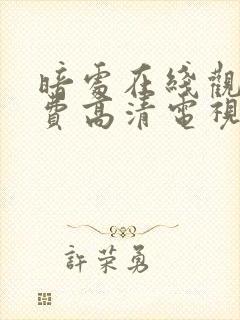 暗處在綫觀
費高清電視
許荣勇